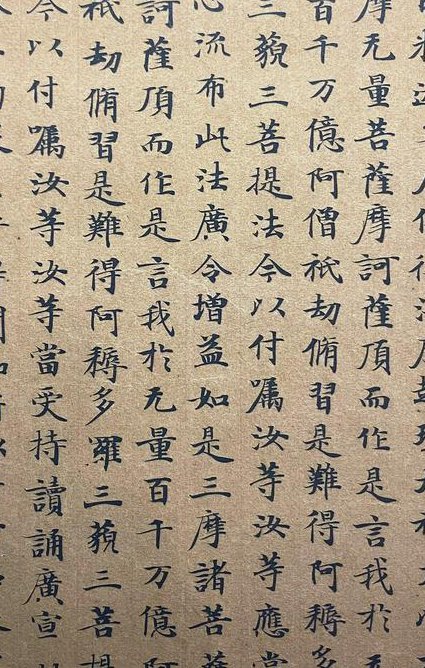 摩无量菩薩摩訶薩頂而作是言我於
百千万億阿僧祇劫脩習是難得阿耨多
三藐三菩提法今以付囑汝等汝等應當
心流布此法廣令增益如是三摩諸菩薩
訶薩頂而作是言我於无量百千万億阿
祇劫脩習是難得阿耨多羅三藐三菩提
今以付囑汝等汝等當受持讀誦廣宣